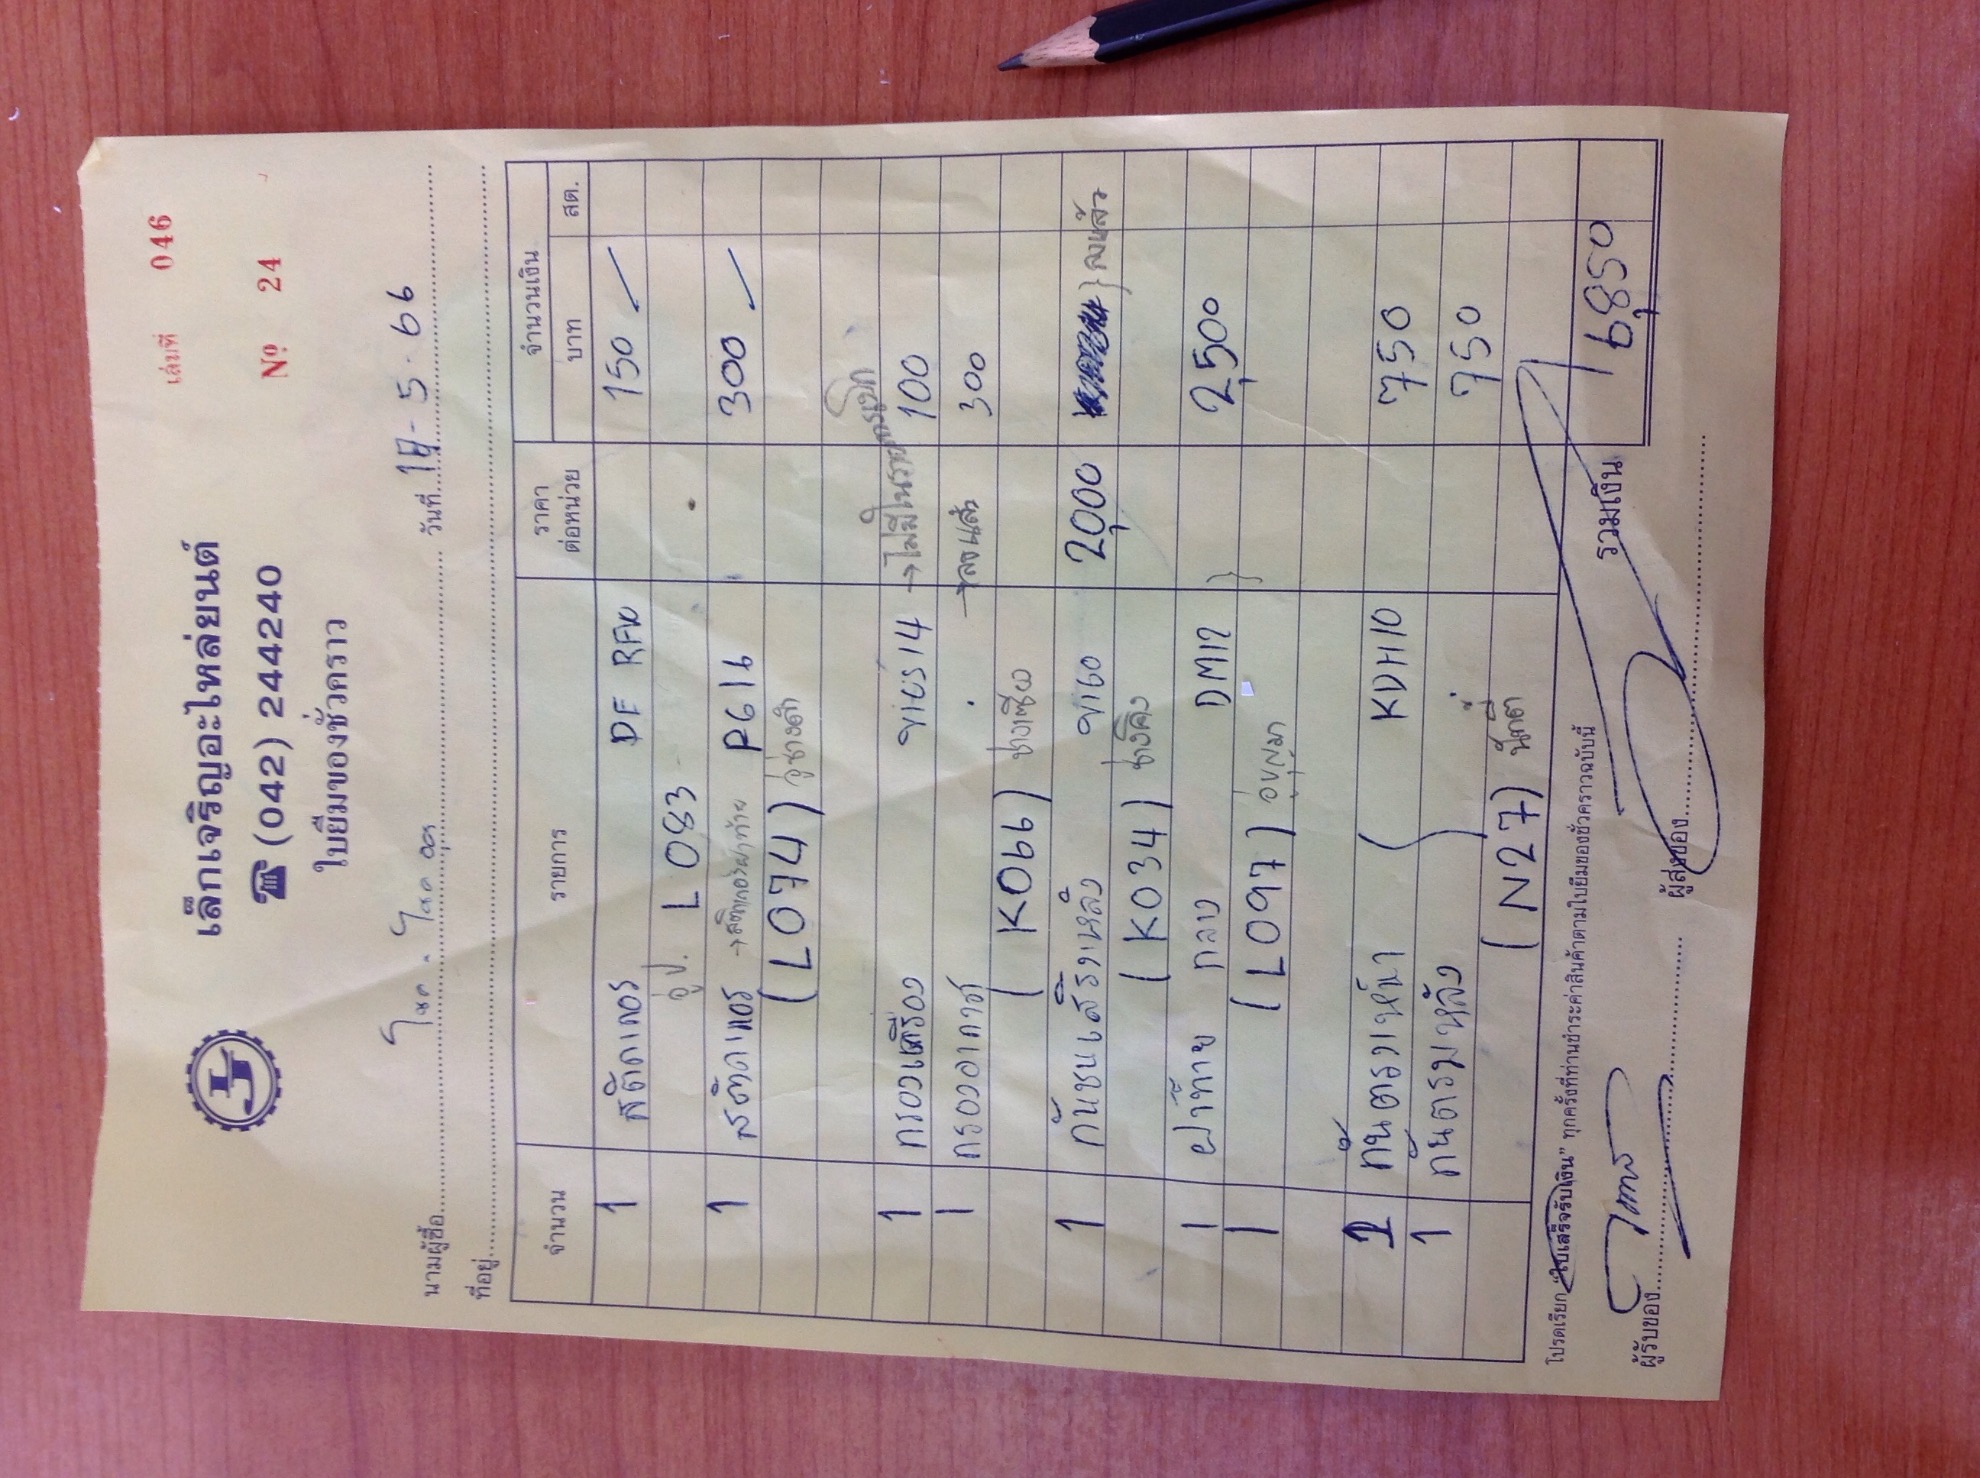 เล่มที่ 046
เล็กเจริญอะไหล่ยนต์
☎ (042) 244240
Nº 24
ใบยืมของชั่วคราว
นามผู้ซื้อ วันที่ 17 - 5 - 66
ที่อยู่
จำนวน รายการ ราคาต่อหน่วย จำนวนเงิน
บาท สต.
1 สติกเกอร์ DF RFW 150
อู่ป. L083
1 สติกเกอร์ P616 300
→สติกเกอร์ฝาท้าย
(L074) อู่ช่างดำ
→ไม่มีในรายการเบิก
1 กรองเครื่อง VIGS14 100
1 กรองอากาศ →ลงแล้ว 300
(K066)
1 กันชนเสริงหลัง VIGO 2,000 } ลงแล้ว
(K034)
1 ฝาท้าย กลาง DM17 } 2,500
1 (L097)
1 KDH10 750
1 750
(N27)
โปรดเรียก "ใบเสร็จรับเงิน" ทุกครั้งที่ท่านชำระค่าสินค้าตามใบยืมของชั่วคราวฉบับนี้
รวมเงิน 6,850
ผู้รับของ ผู้ส่งของ